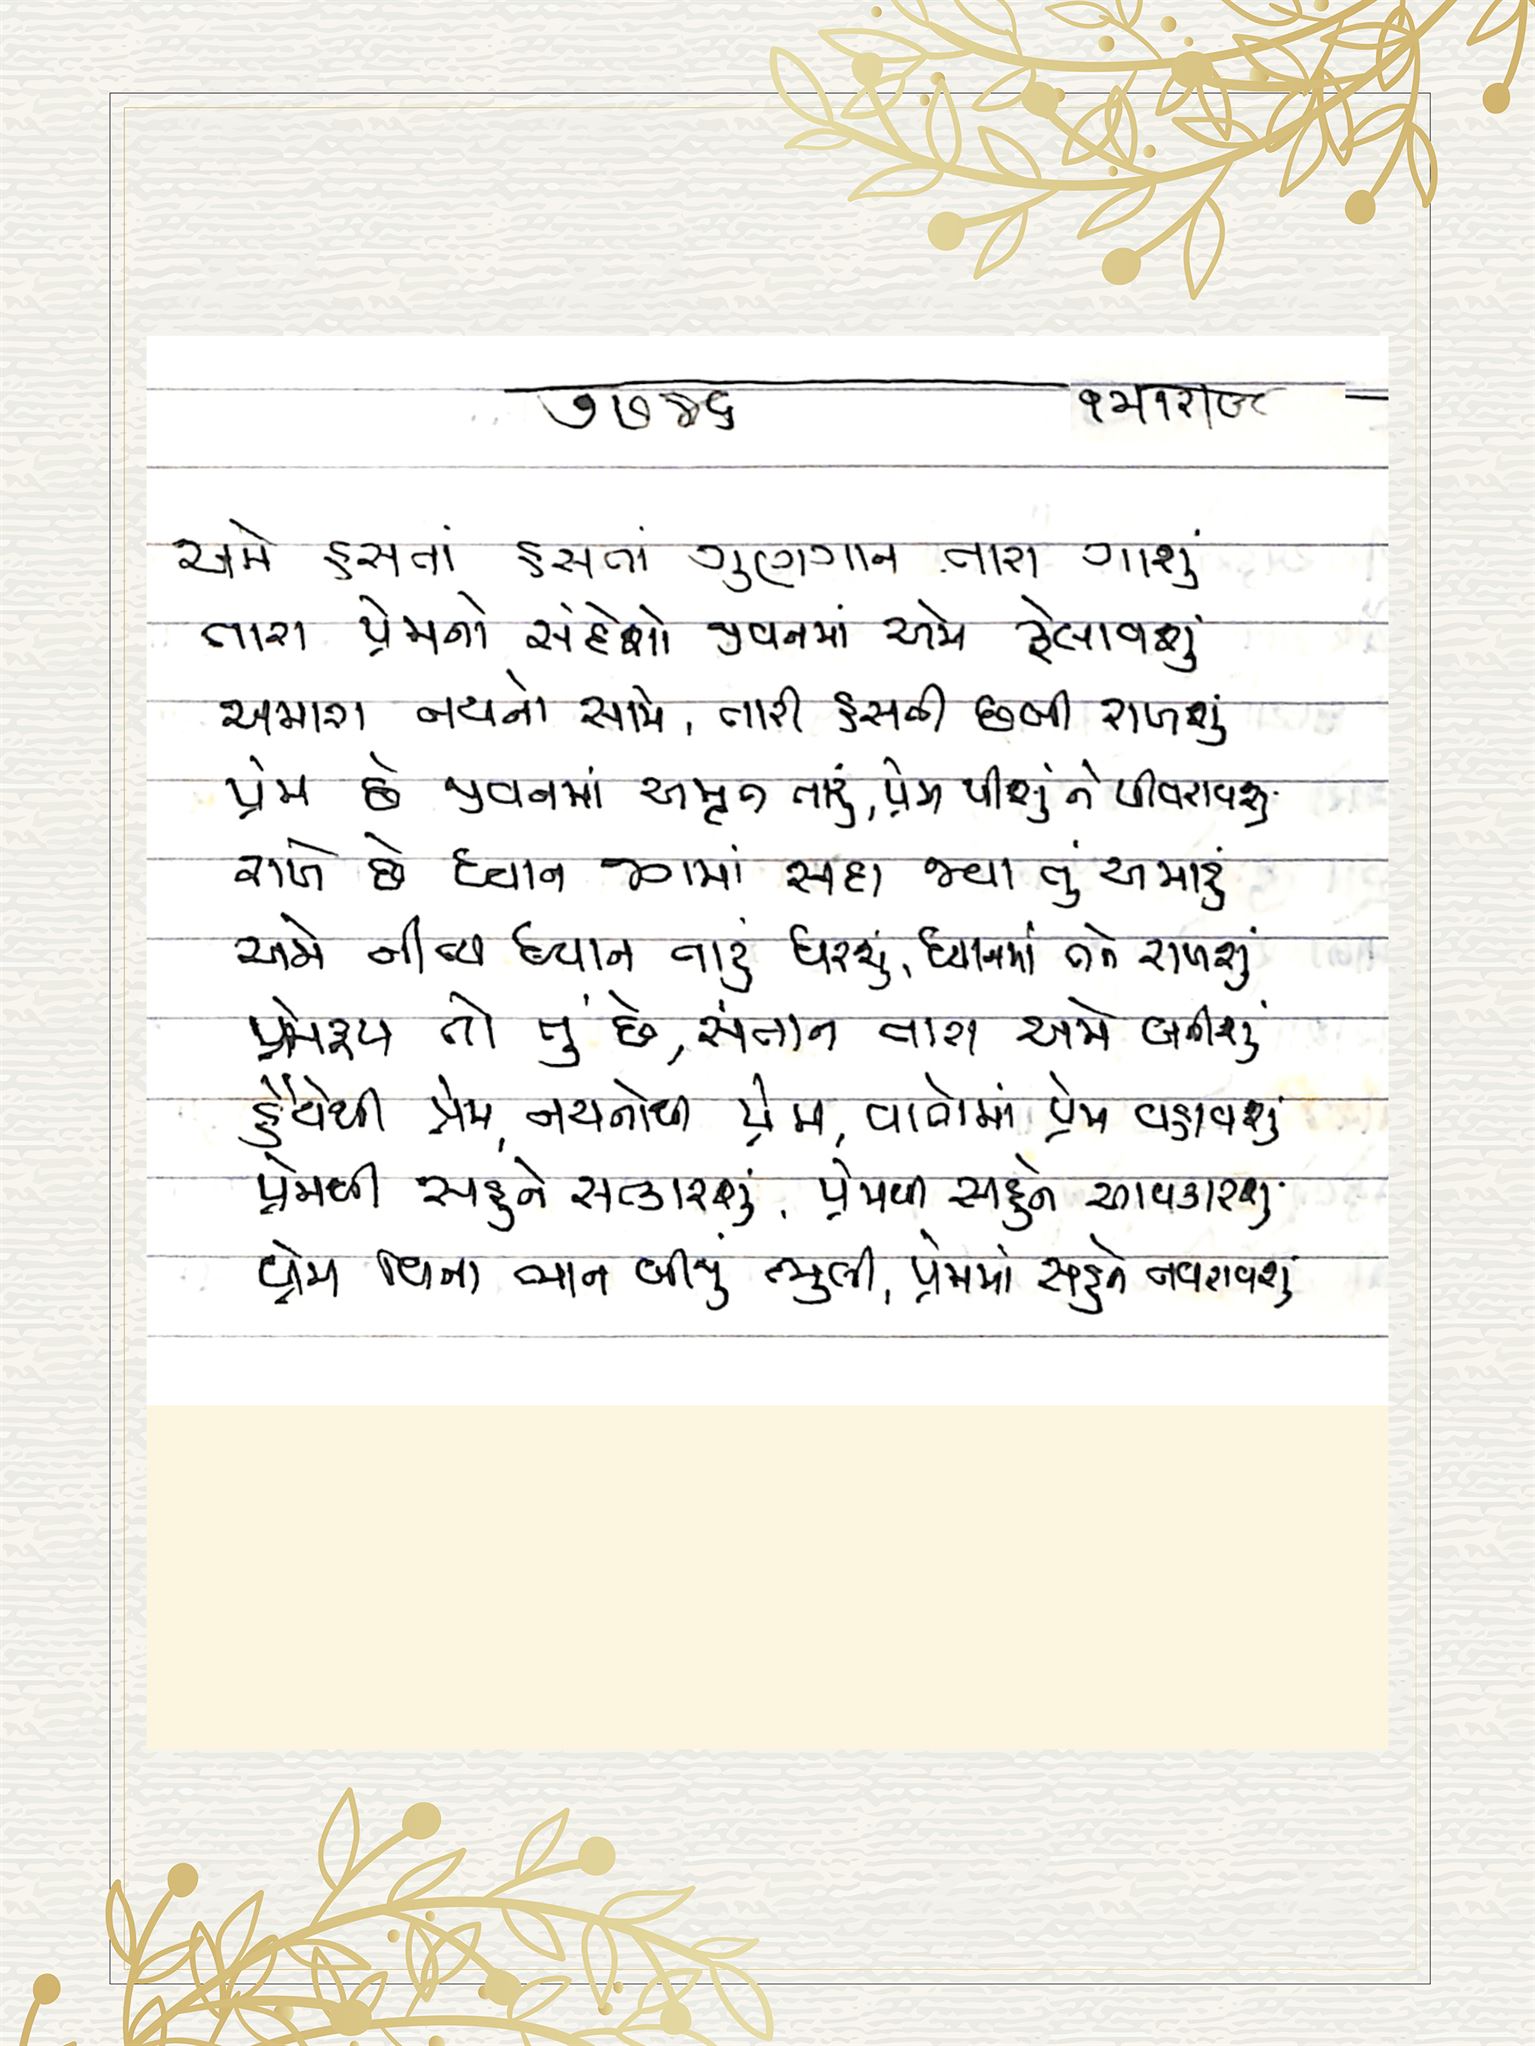 ૭૭૪૬
અમે હસતાં હસતાં ગુણગાન તારા ગાશું
તારા પ્રેમનો સંદેશો જીવનમાં અમે ફેલાવશું
અમારા નયનો સામે, તારી હસતી છબી રાખશું
પ્રેમ છે જીવનમાં અમૃત તારું, પ્રેમ પીશું ને પીવરાવશુ
રાખે છે ધ્યાન જગમાં સદા જ્યાં તું અમારું
અમે નીત્ય ધ્યાન તારું ધરશું, ધ્યાનમાં તને રાખશું
પ્રેમરૂપ તો તું છે, સંતાન તારા અમે બનીશું
હૈયેથી પ્રેમ, નયનોથી પ્રેમ, વાણીમાં પ્રેમ વહાવશું
પ્રેમથી સહુને સત્કારશું, પ્રેમથી સહુને આવકારશુ
પ્રેમ વિના ભાન બીજું ભુલી, પ્રેમમાં સહુને નવરાવશું